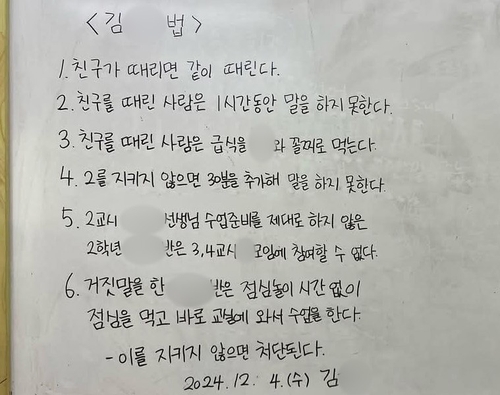 <김 법>
1. 친구가 때리면 같이 때린다.
2. 친구를 때린 사람은 1시간동안 말을 하지 못한다.
3. 친구를 때린 사람은 급식을 와 꼴찌로 먹는다.
4. 2를 지키지 않으면 30분을 추가해 말을 하지 못한다.
5. 2교시 선생님 수업준비를 제대로 하지 않은
2학년 반은 3,4교시 모임에 참여할 수 없다.
6. 거짓말을 한 반은 점심놀이 시간 없이
점심을 먹고 바로 교실에 와서 수업을 한다.
- 이를 지키지 않으면 처단된다.
2024. 12. 4. (수) 김